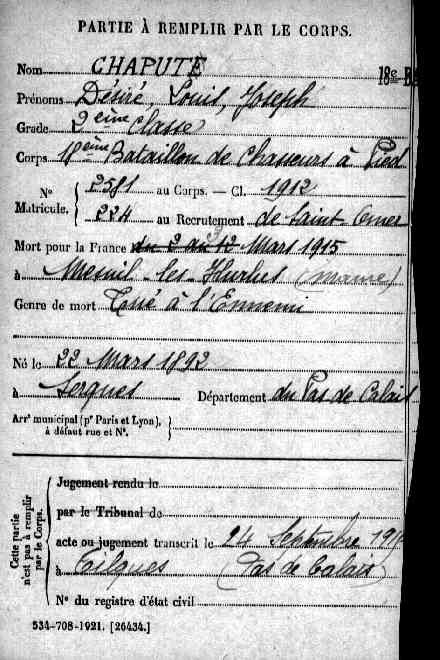 PARTIE À REMPLIR PAR LE CORPS.
Nom CHAPUTE
18e B
Prénoms Désiré, Louis, Joseph
Grade 2eme classe
Corps 18eme Bataillon de Chasseurs à Pied
N° Matricule. { 2581 au Corps. — Cl. 1912
224 au Recrutement de Saint-Omer
Mort pour la France du 2 au 12 Mars 1915
à Mesnil-les-Hurlus (Marne)
Genre de mort Tué à l'Ennemi
Né le 22 Mars 1892
à Serques Département du Pas de Calais
Arrt municipal (pr Paris et Lyon), }
à défaut rue et N°.
Cette partie n'est pas à remplir par le Corps.
Jugement rendu le
par le Tribunal de
acte ou jugement transcrit le 24 Septembre 191
à Tilques (Pas de Calais)
N° du registre d'état civil
534-708-1921. [26434.]